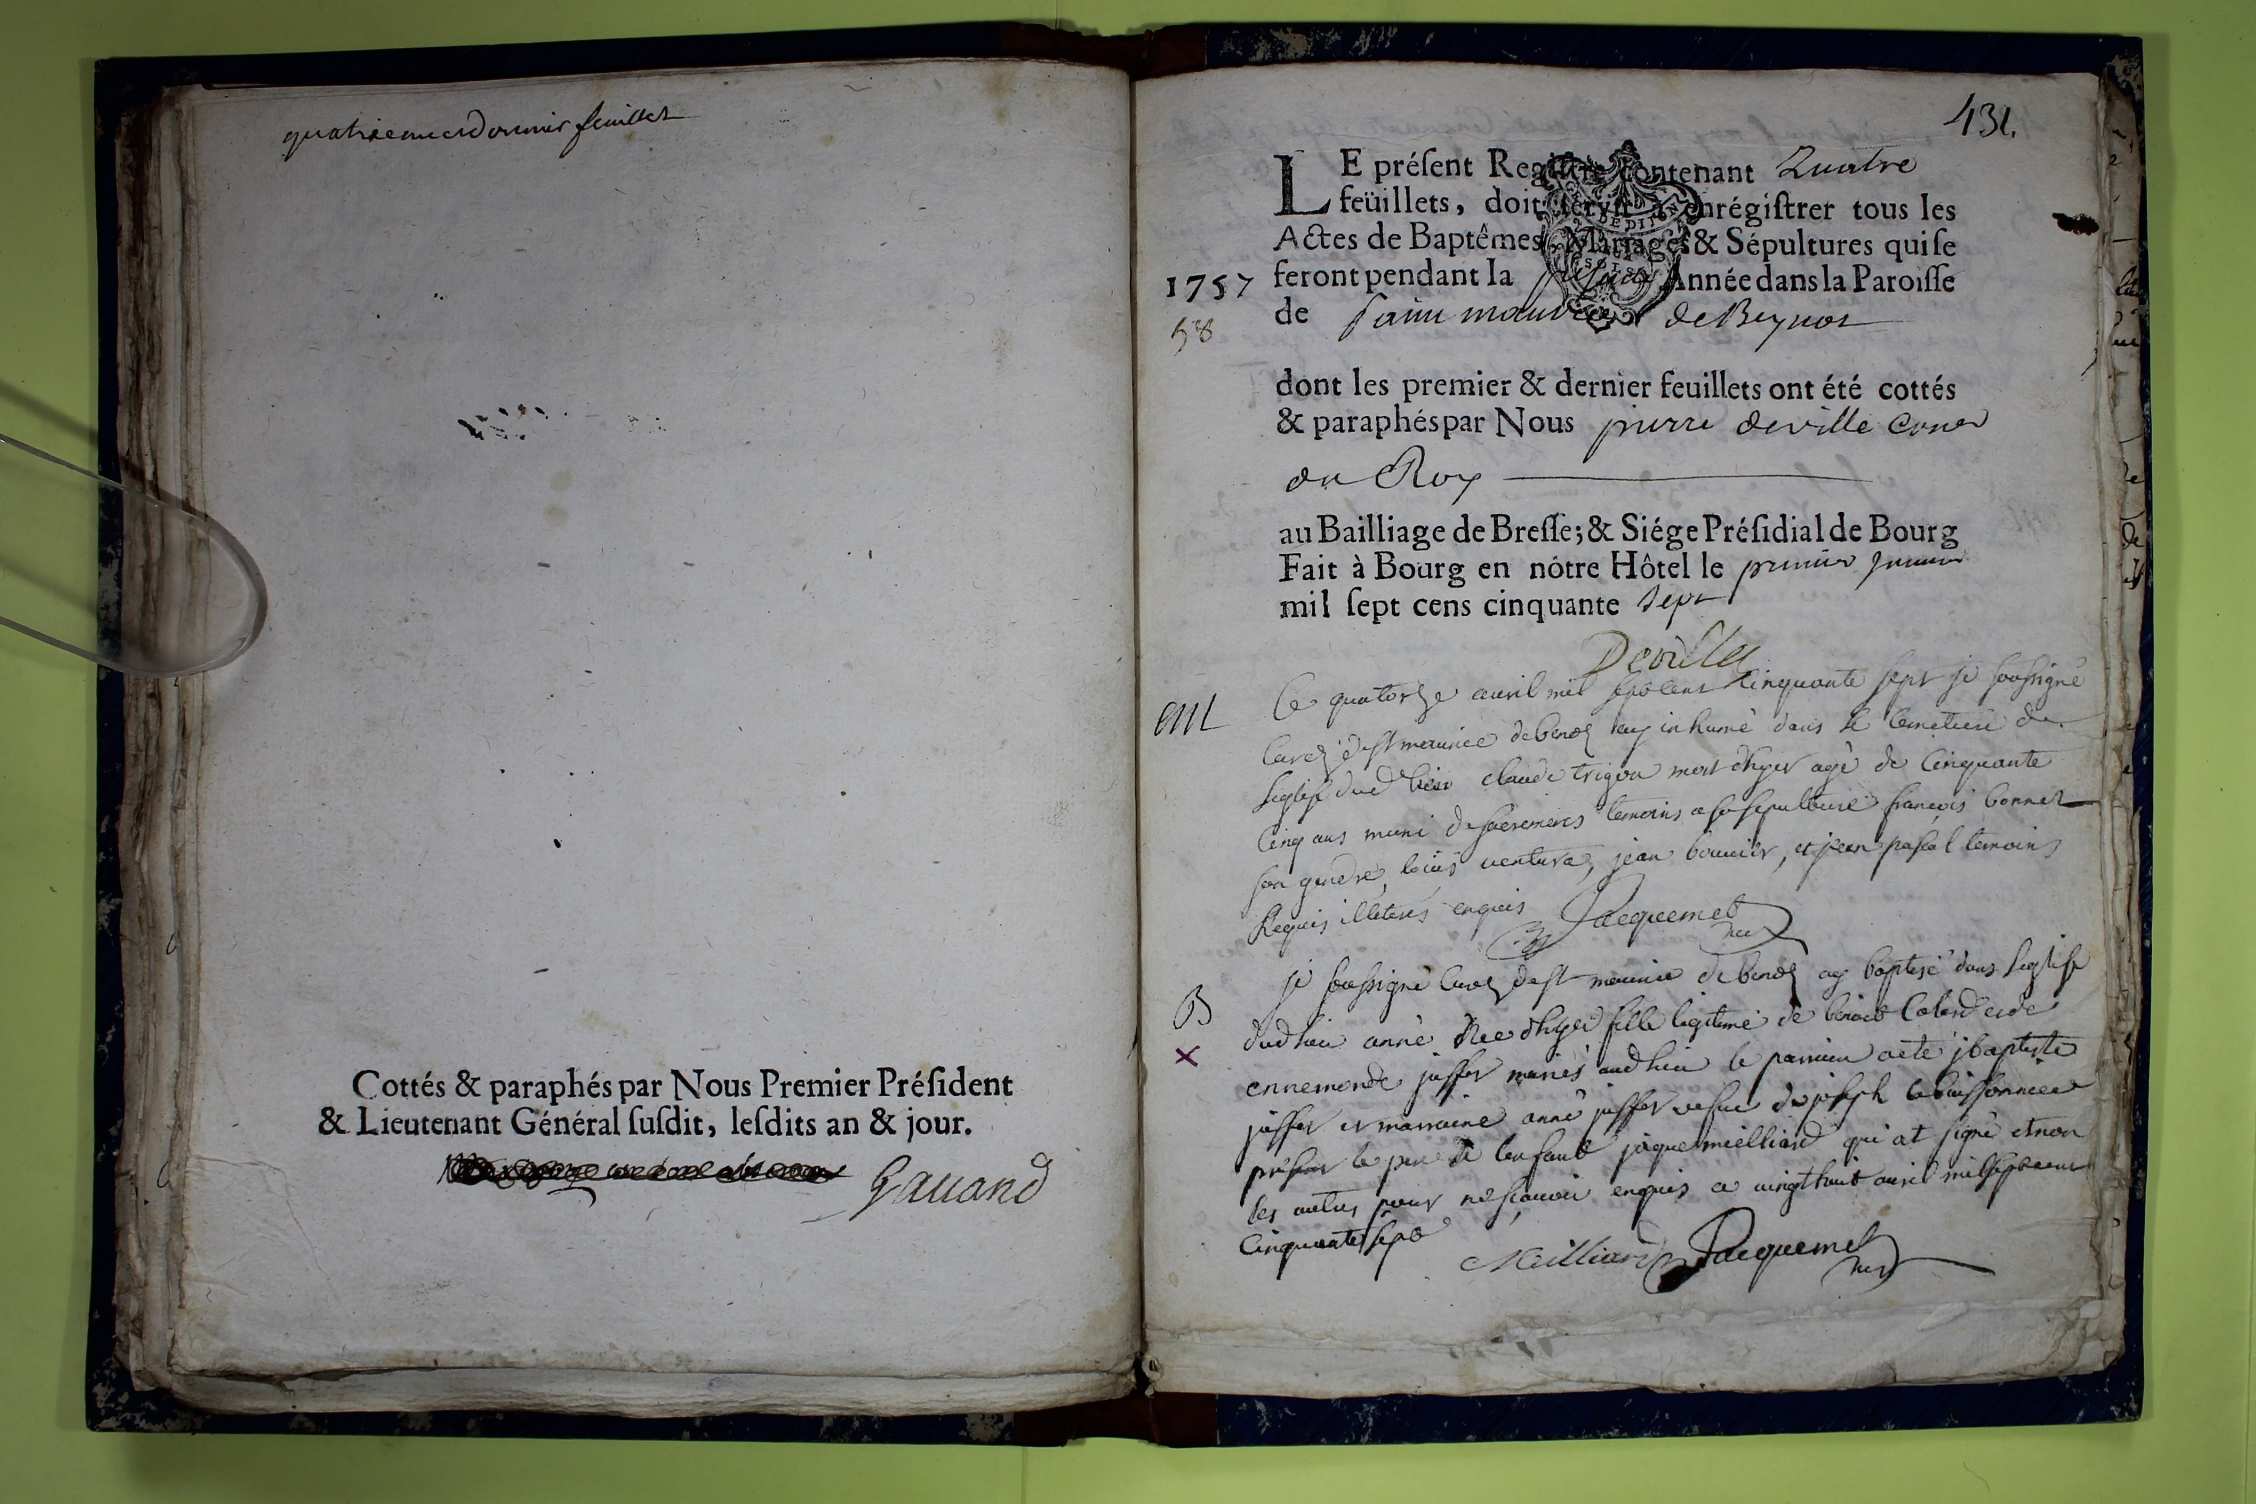 quatrieme et dernier feuillet
Cottés & paraphés par Nous Premier Préſident
& Lieutenant Général ſuſdit, leſdits an & jour.
Gauand
431.
LE préſent Regiſtre contenant Quatre
feüillets, doit ſervir à enrégiſtrer tous les
Actes de Baptêmes, Mariages & Sépultures qui ſe
1757 feront pendant la Année dans la Paroiſſe
58 de saint maurice de Beynost
dont les premier & dernier feuillets ont été cottés
& paraphés par Nous pierre deville coner
du Roy
au Bailliage de Breſſe; & Siége Préſidial de Bourg
Fait à Bourg en nôtre Hôtel le premier Janvier
mil ſept cens cinquante sept
Deville
Ce quatorze auril mil sept cent cinquante sept je soussigné
curé de st maurice de ay inhumé dans le cemetiere de
leglise dud lieu claude trigon mort dhyer agé de cinquante
cinq ans muni de sacremens temoins a sa sepulture françois bonnet
son gendre, loüis ventura, jean bouvier, et jean pascal temoins
Requis illeterés enquis Jacquemet
B je soussigné curé de st maurice de ay baptisé dans leglise
X dud lieu anne née dhyer fille legitime de benoit et de
ennemonde juffet mariés aud lieu le parrien a eté jbaptiste
juffet et marraine anne juffet vefue de joseph
present le pere de lenfant jaque meilliard qui at signé et non
les autres pour ne sçavoir enquis ce vingt huit avril mil sept cent
cinquante sept
Meilliard Jacquemet